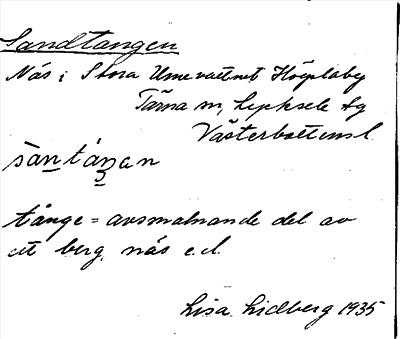 Sandtangen
Näs i Stora Umevattnet Högstaby
Tärna sn, Lycksele lg
Västerbottens l.
sàntáŋan
tånge = avsmalnande del av
ett berg, näs e.d.
Lisa Lidberg 1935